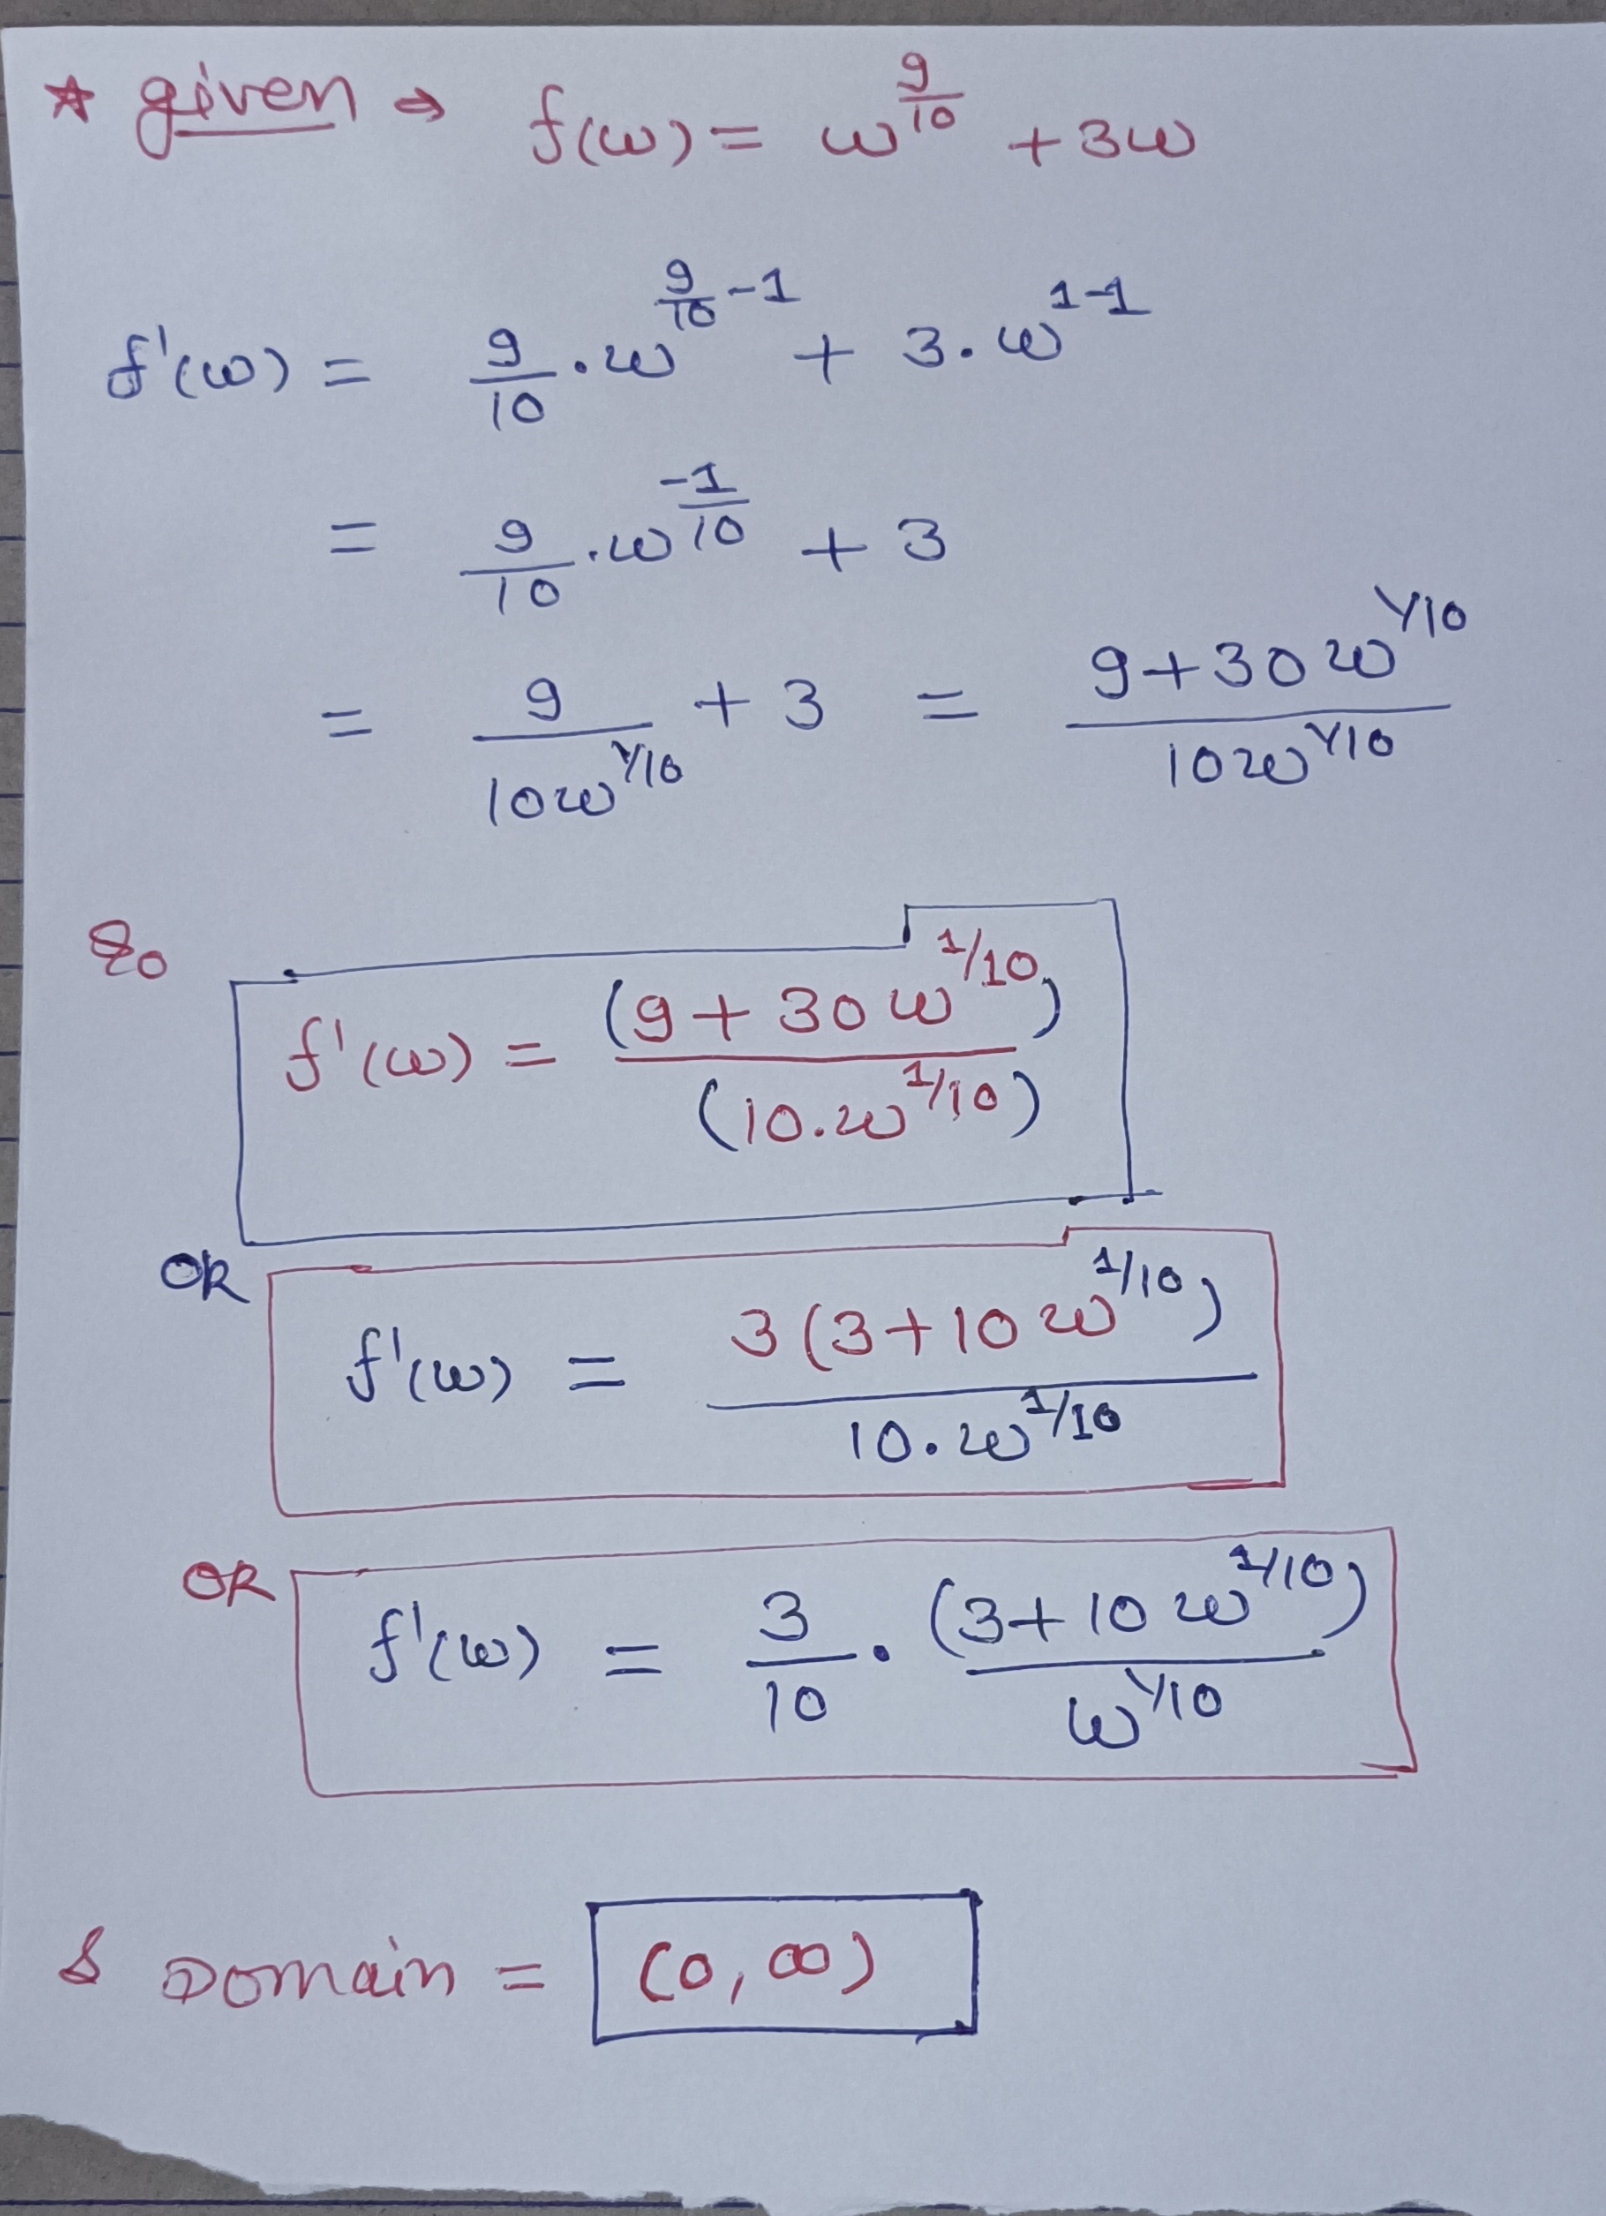 * given ⇒ f(w) = w^(9/10) + 3w
f'(w) = 9/10 · w^(9/10 - 1) + 3 · w^(1-1)
= 9/10 · w^(-1/10) + 3
= 9/(10w^(1/10)) + 3 = (9 + 30w^(1/10))/(10w^(1/10))
So
f'(w) = (9 + 30w^(1/10))/(10.w^(1/10))
OR
f'(w) = 3(3 + 10w^(1/10))/(10.w^(1/10))
OR
f'(w) = 3/10 · (3 + 10w^(1/10))/(w^(1/10))
& Domain = (0, ∞)